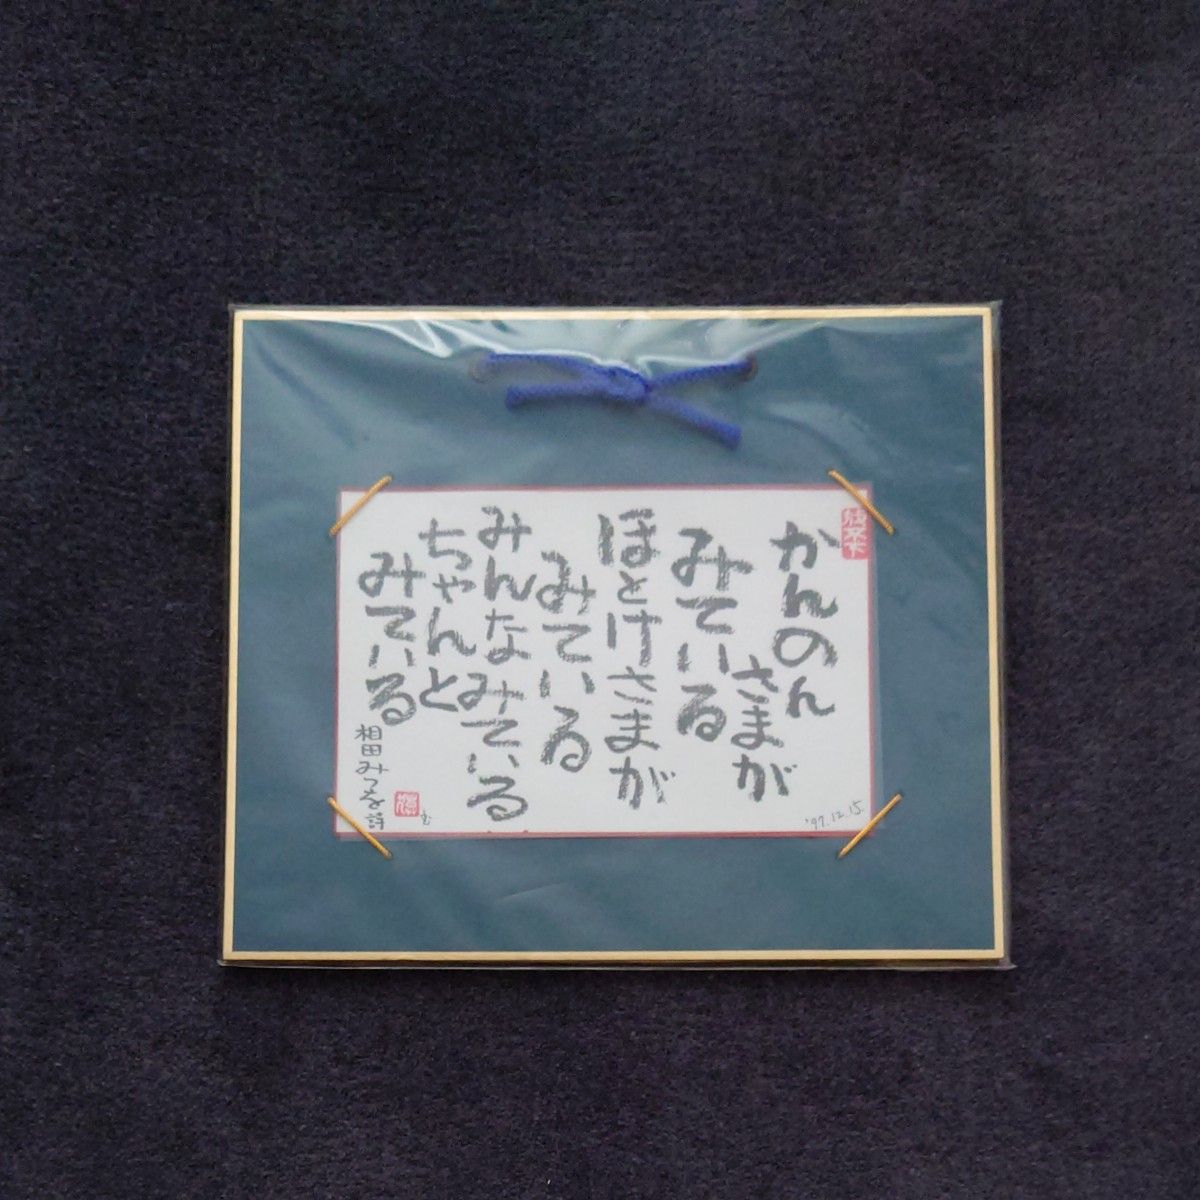 かんのん
さまが
みている
ほとけさまが
みている
みんなみている
ちゃんと
みている
相田みつを詩
'97.12.15.